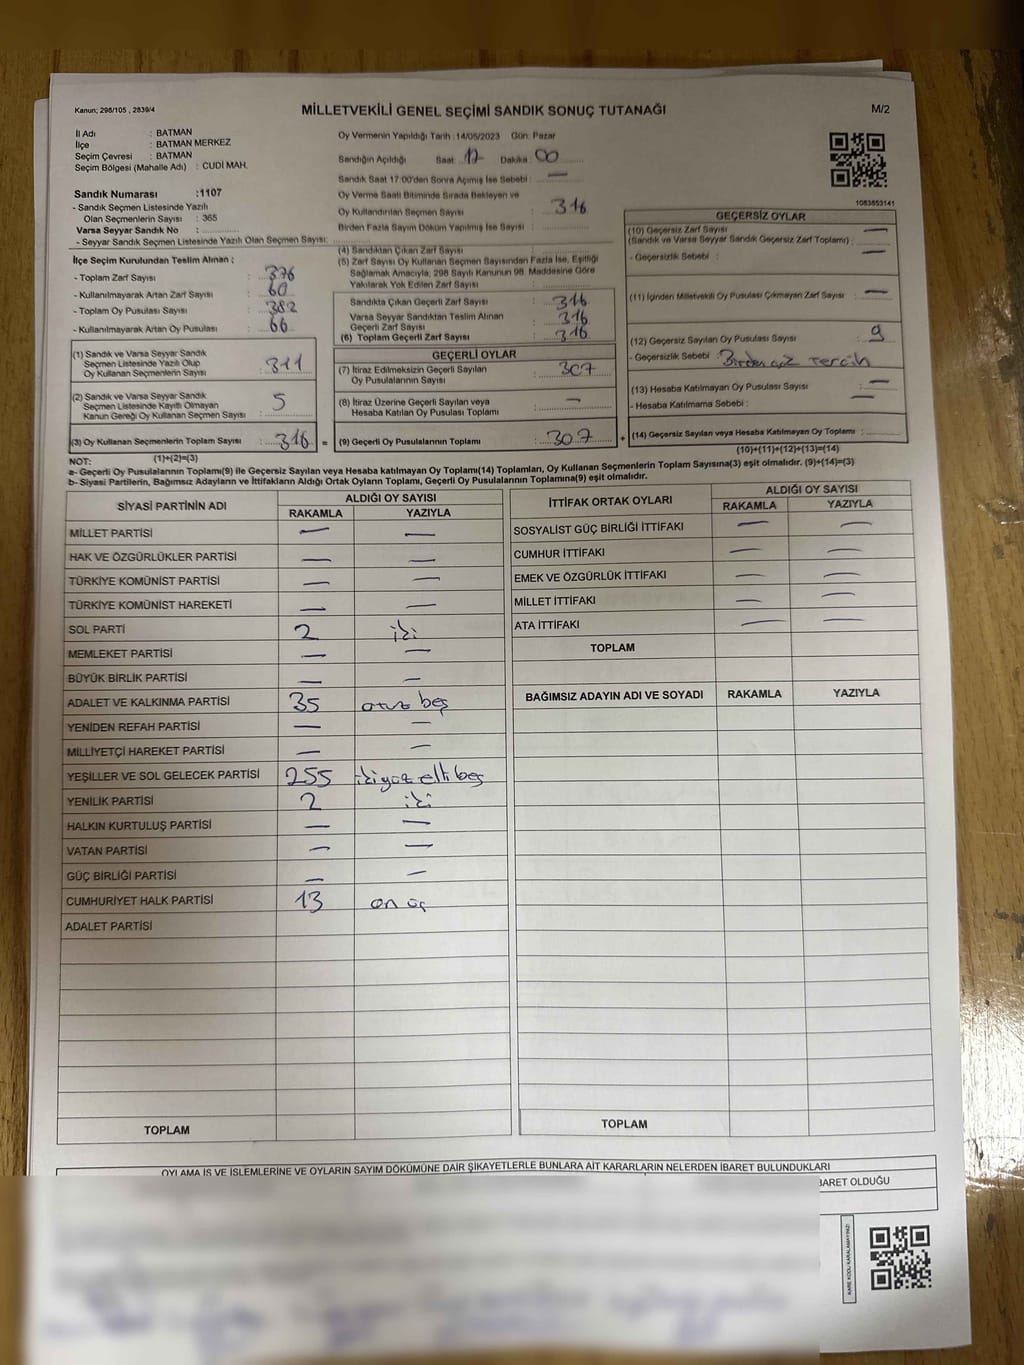 Kanun; 298/105 , 2839/4
MİLLETVEKİLİ GENEL SEÇİMİ SANDIK SONUÇ TUTANAĞI
M/2
İl Adı : BATMAN
İlçe : BATMAN MERKEZ
Seçim Çevresi : BATMAN
Seçim Bölgesi (Mahalle Adı) : CUDİ MAH.
Sandık Numarası :1107
- Sandık Seçmen Listesinde Yazılı
Olan Seçmenlerin Sayısı : 365
Varsa Seyyar Sandık No :
- Seyyar Sandık Seçmen Listesinde Yazılı Olan Seçmen Sayısı:
Oy Vermenin Yapıldığı Tarih :14/05/2023 Gün: Pazar
Sandığın Açıldığı Saat 17 Dakika 00
Sandık Saat 17:00'den Sonra Açımış İse Sebebi : —
Oy Verme Saati Bitiminde Sırada Bekleyen ve
Oy Kullandırılan Seçmen Sayısı : 316
Birden Fazla Sayım Döküm Yapılmış İse Sayısı :
1083853141
İlçe Seçim Kurulundan Teslim Alınan ;
- Toplam Zarf Sayısı : 376
- Kullanılmayarak Artan Zarf Sayısı : 60
- Toplam Oy Pusulası Sayısı : 382
- Kullanılmayarak Artan Oy Pusulası : 66
(1) Sandık ve Varsa Seyyar Sandık
Seçmen Listesinde Yazılı Olup
Oy Kullanan Seçmenlerin Sayısı : 311
(2) Sandık ve Varsa Seyyar Sandık
Seçmen Listesinde Kayıtlı Olmayan
Kanun Gereği Oy Kullanan Seçmen Sayısı : 5
(3) Oy Kullanan Seçmenlerin Toplam Sayısı : 316 =
(1)+(2)=(3)
(4) Sandıktan Çıkan Zarf Sayısı :
(5) Zarf Sayısı Oy Kullanan Seçmen Sayısından Fazla İse, Eşitliği
Sağlamak Amacıyla; 298 Sayılı Kanunun 98. Maddesine Göre
Yakılarak Yok Edilen Zarf Sayısı :
Sandıkta Çıkan Geçerli Zarf Sayısı : 316
Varsa Seyyar Sandıktan Teslim Alınan
Geçerli Zarf Sayısı : 316
(6) Toplam Geçerli Zarf Sayısı : 316
GEÇERLİ OYLAR
(7) İtiraz Edilmeksizin Geçerli Sayılan
Oy Pusulalarının Sayısı : 307
(8) İtiraz Üzerine Geçerli Sayılan veya
Hesaba Katılan Oy Pusulası Toplamı : —
(9) Geçerli Oy Pusulalarının Toplamı : 307 +
GEÇERSİZ OYLAR
(10) Geçersiz Zarf Sayısı : —
(Sandık ve Varsa Seyyar Sandık Geçersiz Zarf Toplamı)
- Geçersizlik Sebebi : —
(11) İçinden Milletvekili Oy Pusulası Çıkmayan Zarf Sayısı : —
(12) Geçersiz Sayılan Oy Pusulası Sayısı : 9
- Geçersizlik Sebebi : Birden çok tercih
(13) Hesaba Katılmayan Oy Pusulası Sayısı : —
- Hesaba Katılmama Sebebi : —
(14) Geçersiz Sayılan veya Hesaba Katılmayan Oy Toplamı :
(10)+(11)+(12)+(13)=(14)
NOT:
a- Geçerli Oy Pusulalarının Toplamı(9) ile Geçersiz Sayılan veya Hesaba katılmayan Oy Toplamı(14) Toplamları, Oy Kullanan Seçmenlerin Toplam Sayısına(3) eşit olmalıdır. (9)+(14)=(3)
b- Siyasi Partilerin, Bağımsız Adayların ve İttifakların Aldığı Ortak Oyların Toplamı, Geçerli Oy Pusulalarının Toplamına(9) eşit olmalıdır.
SİYASİ PARTİNİN ADI ALDIĞI OY SAYISI
RAKAMLA YAZIYLA
MİLLET PARTİSİ — —
HAK VE ÖZGÜRLÜKLER PARTİSİ — —
TÜRKİYE KOMÜNİST PARTİSİ — —
TÜRKİYE KOMÜNİST HAREKETİ — —
SOL PARTİ 2 iki
MEMLEKET PARTİSİ — —
BÜYÜK BİRLİK PARTİSİ — —
ADALET VE KALKINMA PARTİSİ 35 otuz beş
YENİDEN REFAH PARTİSİ — —
MİLLİYETÇİ HAREKET PARTİSİ — —
YEŞİLLER VE SOL GELECEK PARTİSİ 255 ikiyüz elli beş
YENİLİK PARTİSİ 2 iki
HALKIN KURTULUŞ PARTİSİ — —
VATAN PARTİSİ — —
GÜÇ BİRLİĞİ PARTİSİ — —
CUMHURİYET HALK PARTİSİ 13 on üç
ADALET PARTİSİ
TOPLAM
İTTİFAK ORTAK OYLARI ALDIĞI OY SAYISI
RAKAMLA YAZIYLA
SOSYALİST GÜÇ BİRLİĞİ İTTİFAKI — —
CUMHUR İTTİFAKI — —
EMEK VE ÖZGÜRLÜK İTTİFAKI — —
MİLLET İTTİFAKI — —
ATA İTTİFAKI — —
TOPLAM
BAĞIMSIZ ADAYIN ADI VE SOYADI RAKAMLA YAZIYLA
TOPLAM
OYLAMA İŞ VE İŞLEMLERİNE VE OYLARIN SAYIM DÖKÜMÜNE DAİR ŞİKAYETLERLE BUNLARA AİT KARARLARIN NELERDEN İBARET BULUNDUKLARI
BARET OLDUĞU
KARE KODU KARALAMAYINIZ!